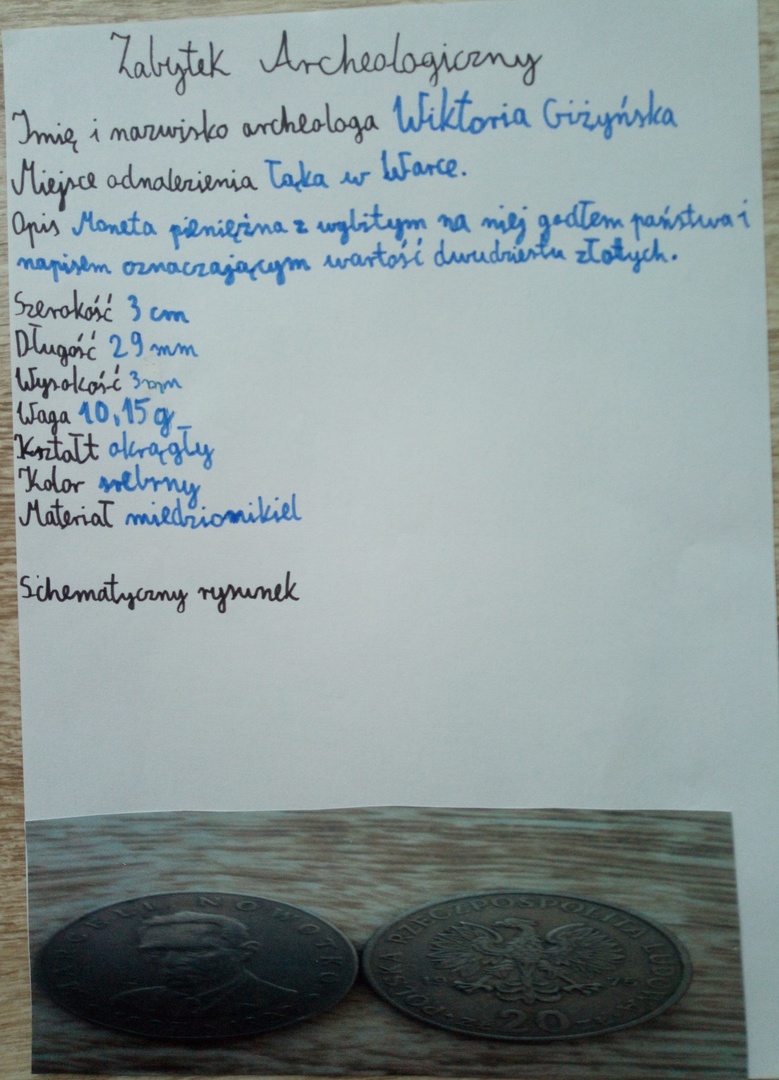 Zabytek Archeologiczny
Imię i nazwisko archeologa Wiktoria Giżyńska
Miejsce odnalezienia Łąka w Warce.
Opis Moneta pieniężna z wybitym na niej godłem państwa i
napisem oznaczającym wartość dwudziestu złotych.
Szerokość 3 cm
Długość 29 mm
Wysokość 3 mm
Waga 10,15 g
Kształt okrągły
Kolor srebrny
Materiał miedzionikiel
Schematyczny rysunek
NOWOTKO
POLSKA RZECZPOSPOLITA LUDOWA
20